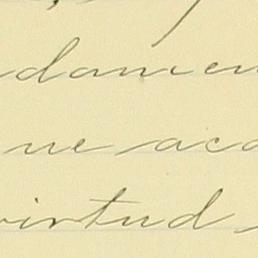 damen
ne aca
virtud